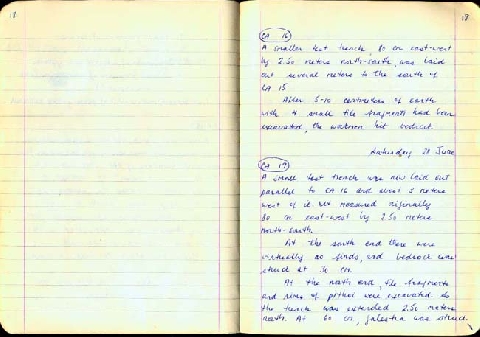 18
19
CA 16
A smaller test trench, 80 cm east-west
by 2.50 metres north-south, was laid
out several metres to the south of
CA 15
After 5-10 centimetres of earth
with 4 small tile fragments had been
excavated, the workmen hit bedrock.
Saturday 21 June
CA 17
A small test trench was now laid out
parallel to CA 16 and about 5 metres
west of it. It measured originally
80 cm east-west by 2.50 metres
north-south.
At the south end there were
virtually no finds, and bedrock was
struck at cm.
At the north end, tile fragments
and rims of pithoi were excavated so
the trench was extended 2.50 metres
north. At 60 cm, was struck